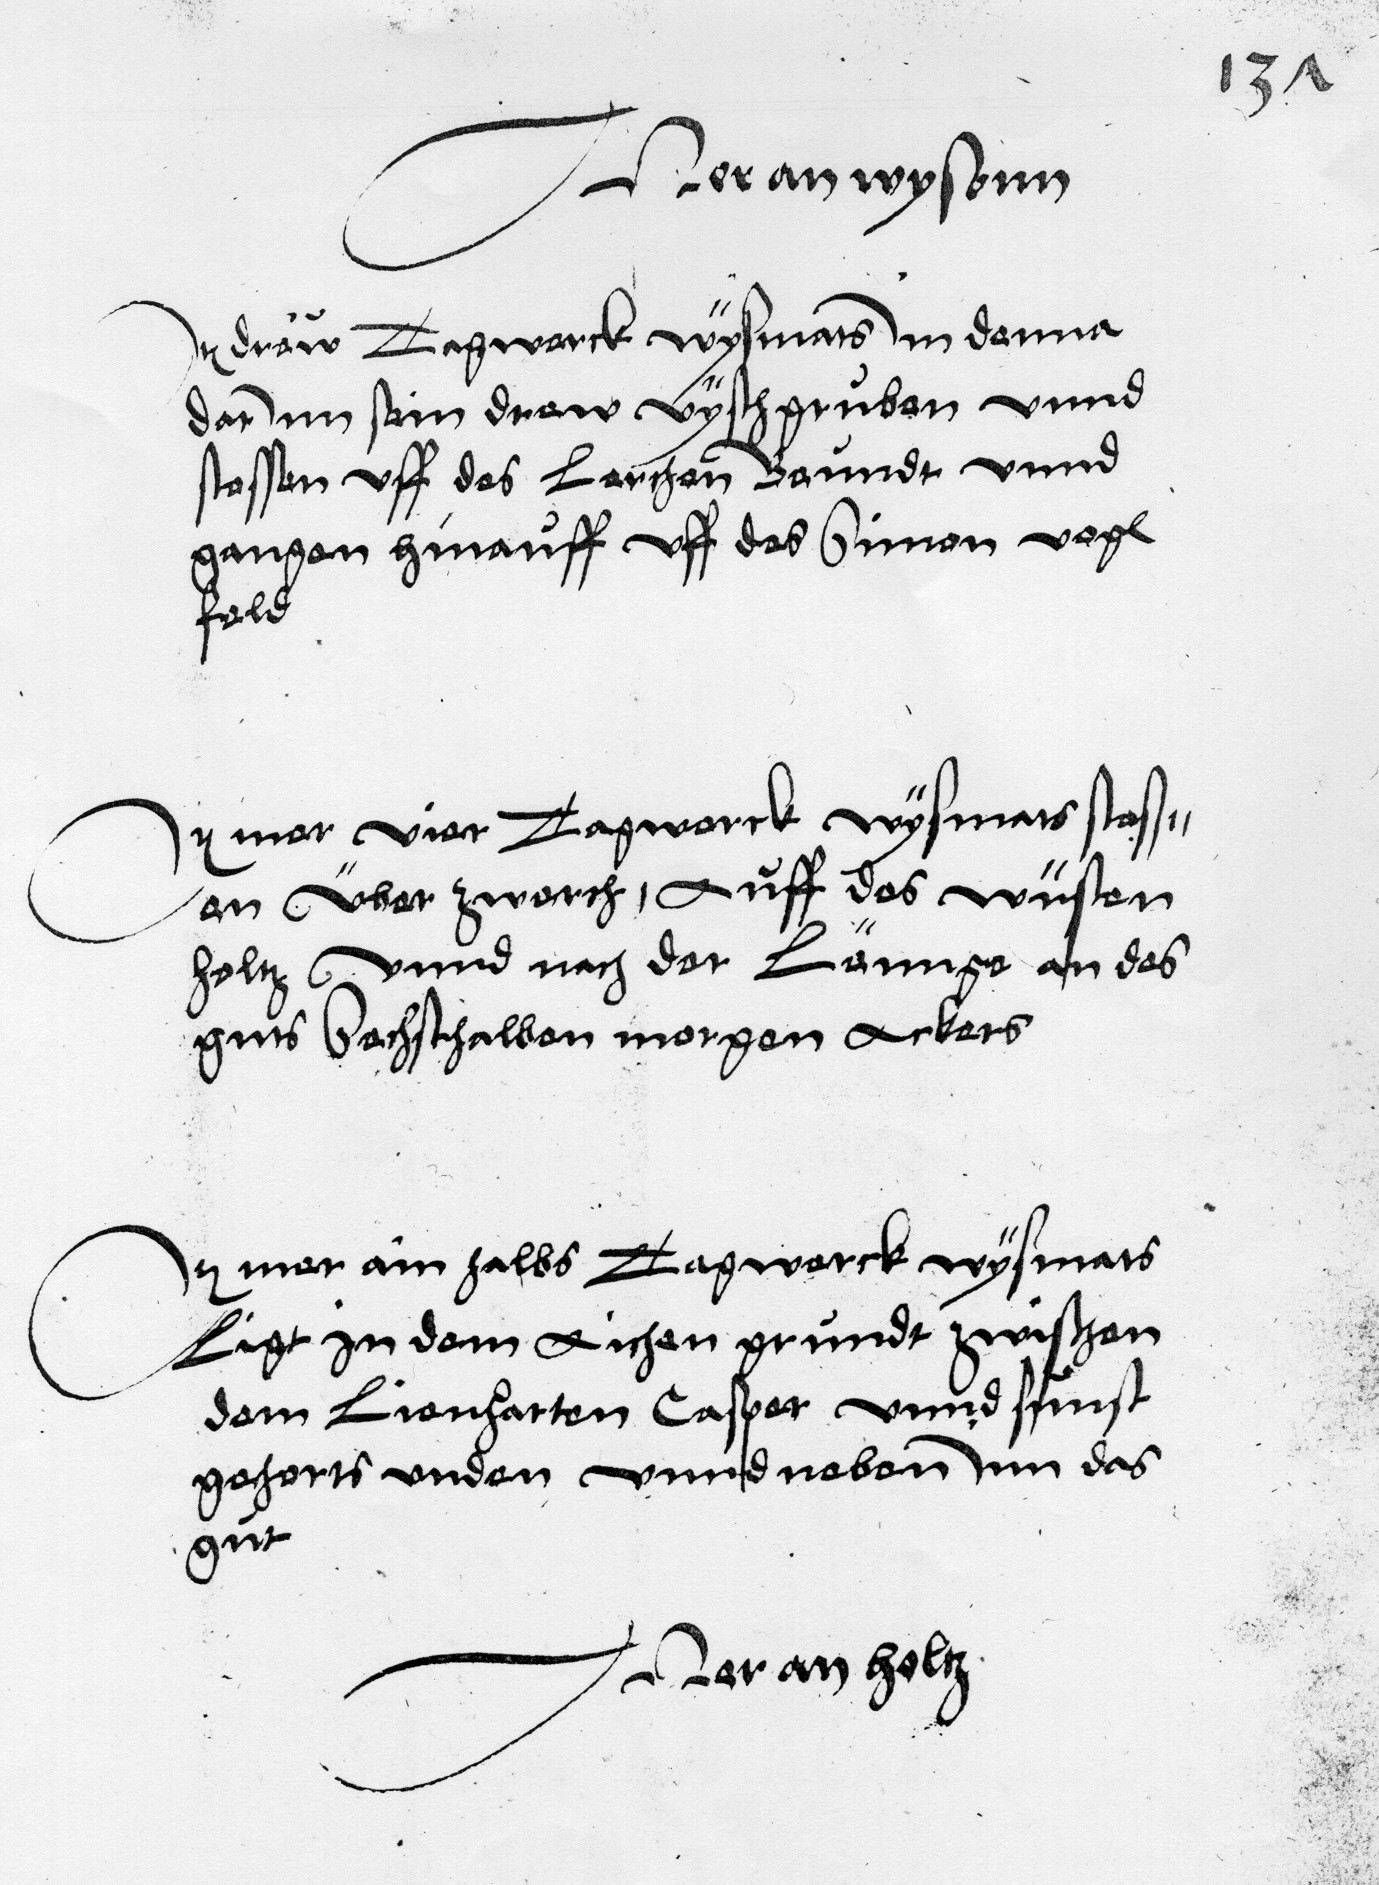 131
Mer an wysenn
It drew Tagwerck wÿsmats Inn denna
dar Inn sein drew vÿschgrůben vnnd
stossen vff des Lerchen Beundt vnnd
gangen hinauff vff des Simon vogl
feld
It mer vier Tagwerck wÿsmats stoss„
en Über zwerch, Auff des wüsten
holtz vnnd nach der Lënnge an des
guts Sechsthalben morgen Ackers
It mer ain halbs Tagwerck wÿsmats
Ligt in dem Aichen grundt zwischen
dem Lienharten Casper vnnd sunst
gehorts vnden vnnd neben Inn das
gůt
Mer an holtz